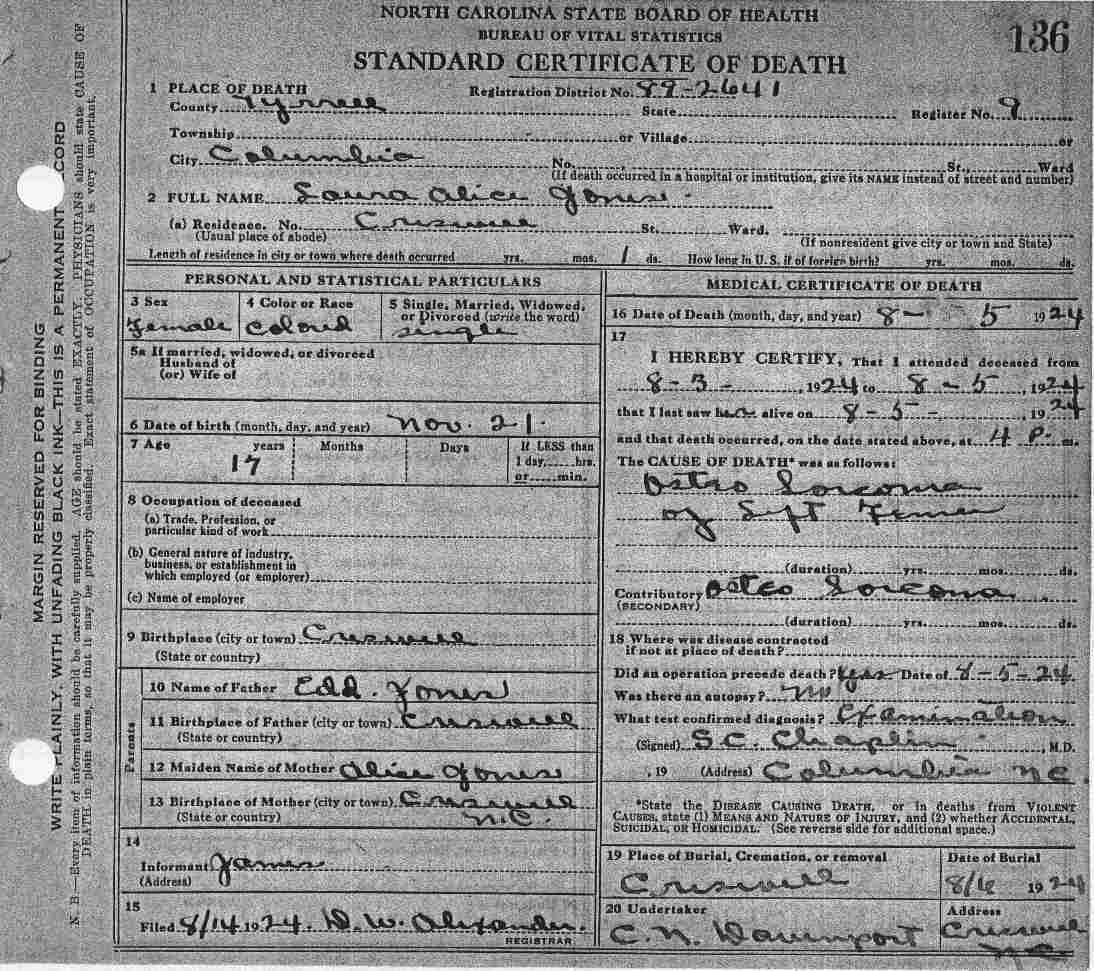 NORTH CAROLINA STATE BOARD OF HEALTH
BUREAU OF VITAL STATISTICS
136
STANDARD CERTIFICATE OF DEATH
1 PLACE OF DEATH Registration District No. 89-2641
County Tyrrell State Register No. 9
Township or Village or
City Columbia No. St., Ward
(If death occurred in a hospital or institution, give its NAME instead of street and number)
2 FULL NAME Laura Alice Jones
(a) Residence. No. Creswell St. Ward.
(Usual place of abode) (If nonresident give city or town and State)
Length of residence in city or town where death occurred yrs. mos. 1 ds. How long in U. S. if of foreign birth? yrs. mos. ds.
PERSONAL AND STATISTICAL PARTICULARS
3 Sex 4 Color or Race 5 Single, Married, Widowed, or Divorced (write the word)
Female Colord single
5a If married, widowed, or divorced
Husband of
(or) Wife of
6 Date of birth (month, day, and year) Nov. 21.
7 Age years Months Days If LESS than
17 1 day, hrs.
or min.
8 Occupation of deceased
(a) Trade, Profession, or
particular kind of work
(b) General nature of industry,
business, or establishment in
which employed (or employer)
(c) Name of employer
9 Birthplace (city or town) Creswell
(State or country)
Parents
10 Name of Father Edd. Jones
11 Birthplace of Father (city or town) Creswell
(State or country)
12 Maiden Name of Mother Alice Jones
13 Birthplace of Mother (city or town) Creswell
(State or country) N.C.
14
Informant James
(Address)
15
Filed 8/14 1924. D. W. Alexander.
REGISTRAR
MEDICAL CERTIFICATE OF DEATH
16 Date of Death (month, day, and year) 8- 5 1924
17
I HEREBY CERTIFY, That I attended deceased from
8-3-, 1924 to 8-5, 1924
that I last saw her alive on 8-5-, 1924
and that death occurred, on the date stated above, at 4 P. m.
The CAUSE OF DEATH* was as follows:
Osteo Sorcoma
of Lift Femur
(duration) yrs. mos. ds.
Contributory Osteo Sorcoma
(SECONDARY)
(duration) yrs. mos. ds.
18 Where was disease contracted
if not at place of death?
Did an operation precede death? Yes Date of 8-5-24
Was there an autopsy? No
What test confirmed diagnosis? Examination
(Signed) S.C. Chaplin, M.D.
, 19 (Address) Columbia NC.
*State the DISEASE CAUSING DEATH, or in deaths from VIOLENT
CAUSES, state (1) MEANS AND NATURE OF INJURY, and (2) whether ACCIDENTAL,
SUICIDAL, OR HOMICIDAL. (See reverse side for additional space.)
19 Place of Burial, Cremation, or removal Date of Burial
Creswell 8/6 1924
20 Undertaker Address
C. N. Davenport Creswell
NC
MARGIN RESERVED FOR BINDING
WRITE PLAINLY, WITH UNFADING BLACK INK—THIS IS A PERMANENT CORD
N. B.—Every item of information should be carefully supplied. AGE should be stated EXACTLY. PHYSICIANS should state CAUSE OF
DEATH in plain terms, so that it may be properly classified. Exact statement of OCCUPATION is very important.